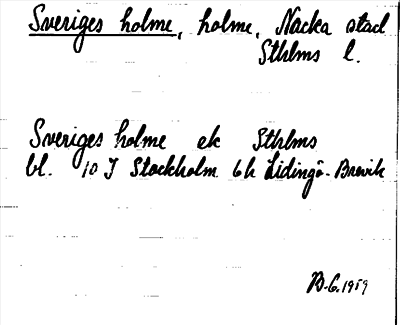 Sveriges holme, holme, Nacka stad
Sthlms l.
Sveriges holme ek Sthlms
bl. 10 J Stockholm 6h Lidingö-Brevik
B.6.1959